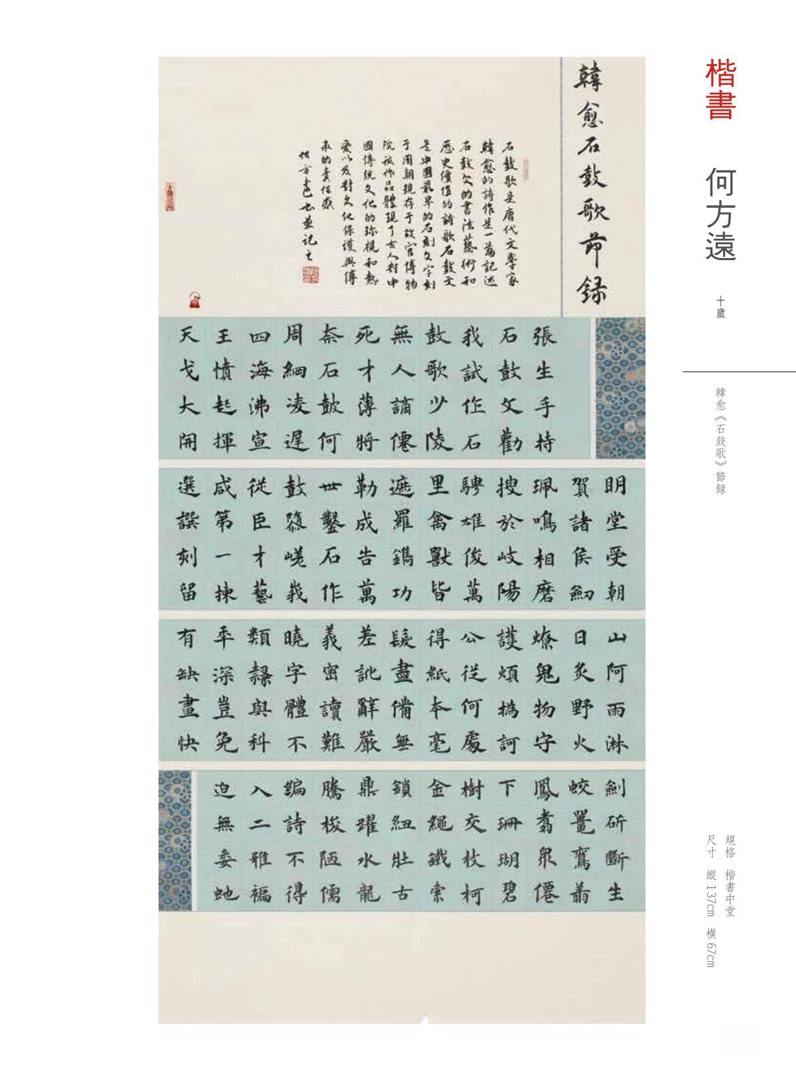 楷書 何方遠 十歲
韓愈《石鼓歌》節録
規格 楷書中堂
尺寸 縱137cm 橫67cm
韓愈石鼓歌節録
石鼓歌是唐代文學家
韓愈的詩作是一篇記述
石鼓文的書法藝術和
歷史價值的詩歌石鼓文
是中國最早的石刻文字刻
于周朝現存于故宮博物
院該作品體現了古人對中
國傳統文化的珍視和熱
愛以及對文化保護與傳
承的責任感
何方遠書並記之
張生手持
石鼓文勸
我試作石
鼓歌少陵
無人謫僊
死才薄將
奈石鼓何
周綱凌遲
四海沸宣
王憤起揮
天戈大開
明堂受朝
賀諸侯劒
珮鳴相磨
搜於岐陽
騁雄俊萬
里禽獸皆
遮羅鐫功
勒成告萬
世鑿石作
鼓隳嵯峩
從臣才藝
咸第一揀
選譔刻留
山阿雨淋
日炙野火
燎鬼物守
護煩撝訶
公從何處
得紙本毫
髮盡備無
差訛辭嚴
義密讀難
曉字體不
類隸與科
年深豈免
有缺畫快
劒斫斷生
蛟鼉鸞翔
鳳翥衆僊
下珊瑚碧
樹交枝柯
金繩鐵索
鎖紐壯古
鼎躍水龍
騰梭陋儒
編詩不得
入二雅褊
迫無委虵